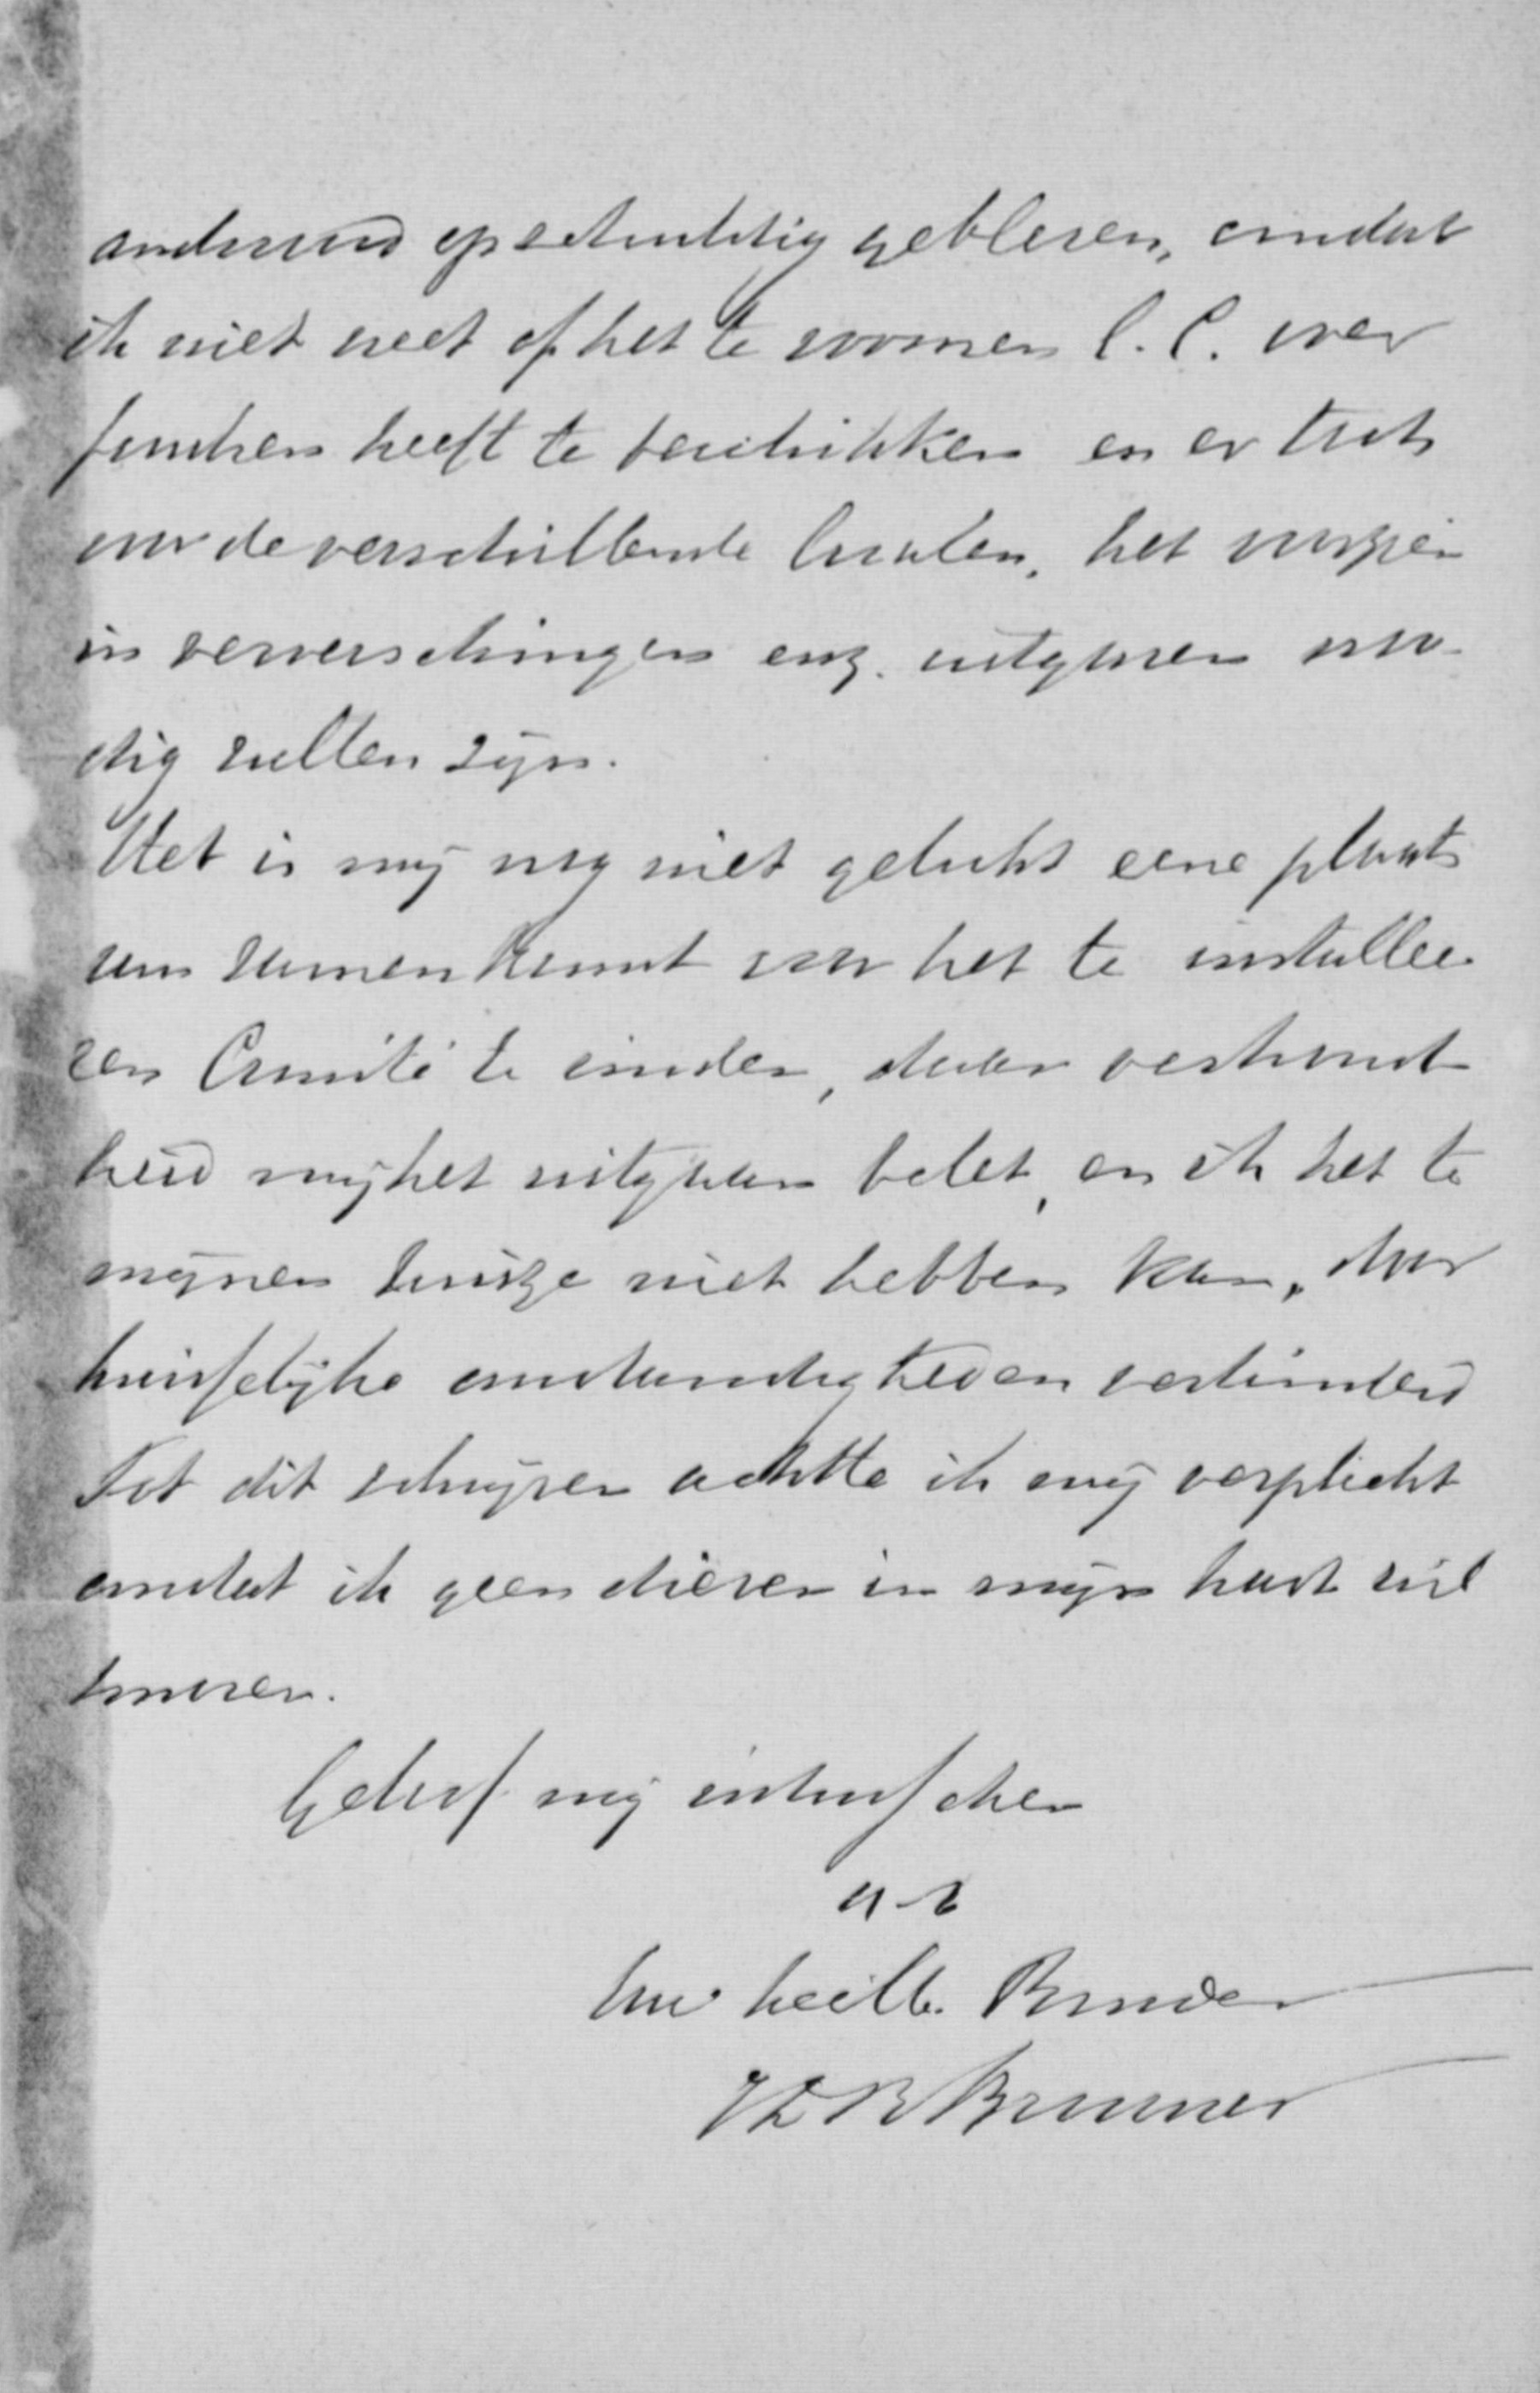 anderend opzichtig gebleven, omdat
ik niet weet of het te vormen C. C. over
fondsen heeft te beschikken en er toch
voor de verschillende localen, het voorzien
in ververschingen enz. uitgaven noo-
dig zullen zijn.
Het is mij nog niet gelukt eene plaats
van samenkomst voor het te installee-
ren Comité te vinden, daar
heid mij het uitgaan belet, en ik het te
mijnen huize niet hebben kan, door
huisselijke omstandigheden verhinderd
Tot dit schrijven achtte ik mij verplicht
omdat ik geen dieven in mijn hart wil
Geloof mij intusschen
Uw heilb. Broeder
Brummer